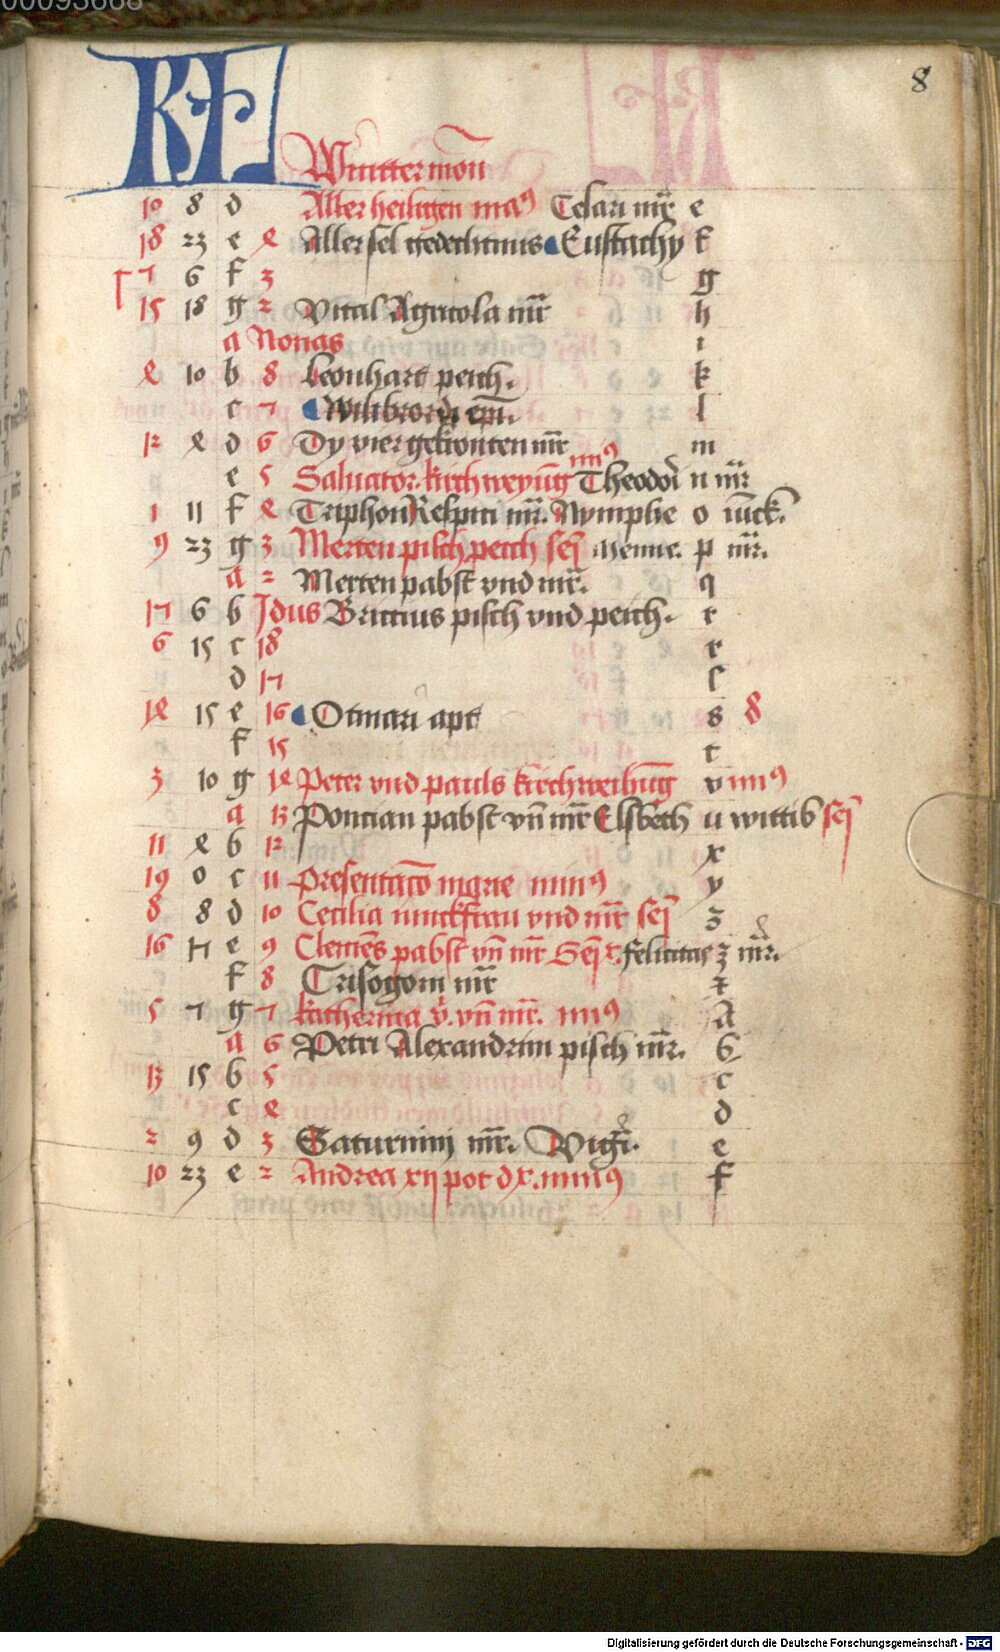 00093668
8
KL
Wintter mon
10 8 d Aller heiligen ma9 Cesarii mr e
18 23 e 4 Aller sel gedechtnus Eustachy f
7 6 f 3 g
15 18 g 2 Vital Agricola mr h
a Nonas i
4 10 b 8 Leonhart peich. k
c 7 Wilibrordi epi. l
12 4 d 6 Dy vier gekronten mr m
e 5 Saluator kirchweyung mi9 Theodori n mr
1 11 f 4 Triphon Respicii mr. Nymphe o iuck.
9 23 g 3 Merten pisch peich sej Menne. p mr.
a 2 Merten pabst vnd mr. q
17 6 b Idus Briccius pisch vnd peich. r
6 15 c 18 r
d 17 s
14 15 e 16 Otmari apt s 8
f 15 t
3 10 g 14 Peter vnd pauls kirchweihung v mi9
a 13 Poncian pabst vn mr Elsbeth u wittib sej
11 4 b 12 x
19 0 c 11 Presentaco marie min9 y
8 8 d 10 Cecilia iunckfrau vnd mr sej z
16 17 e 9 Clemens pabst vn mr Sej. felicitas z mr.
f 8 Crisogoni mr
5 7 g 7 katherina v. vn mr. mi9 A
a 6 Petri Alexandrini pisch mr. b
13 15 b 5 c
c 4 d
2 9 d 3 Saturninj mr. Vigi. e
10 23 e 2 Andrea xij pot dx. min9 f
Digitalisierung gefördert durch die Deutsche Forschungsgemeinschaft - DFG